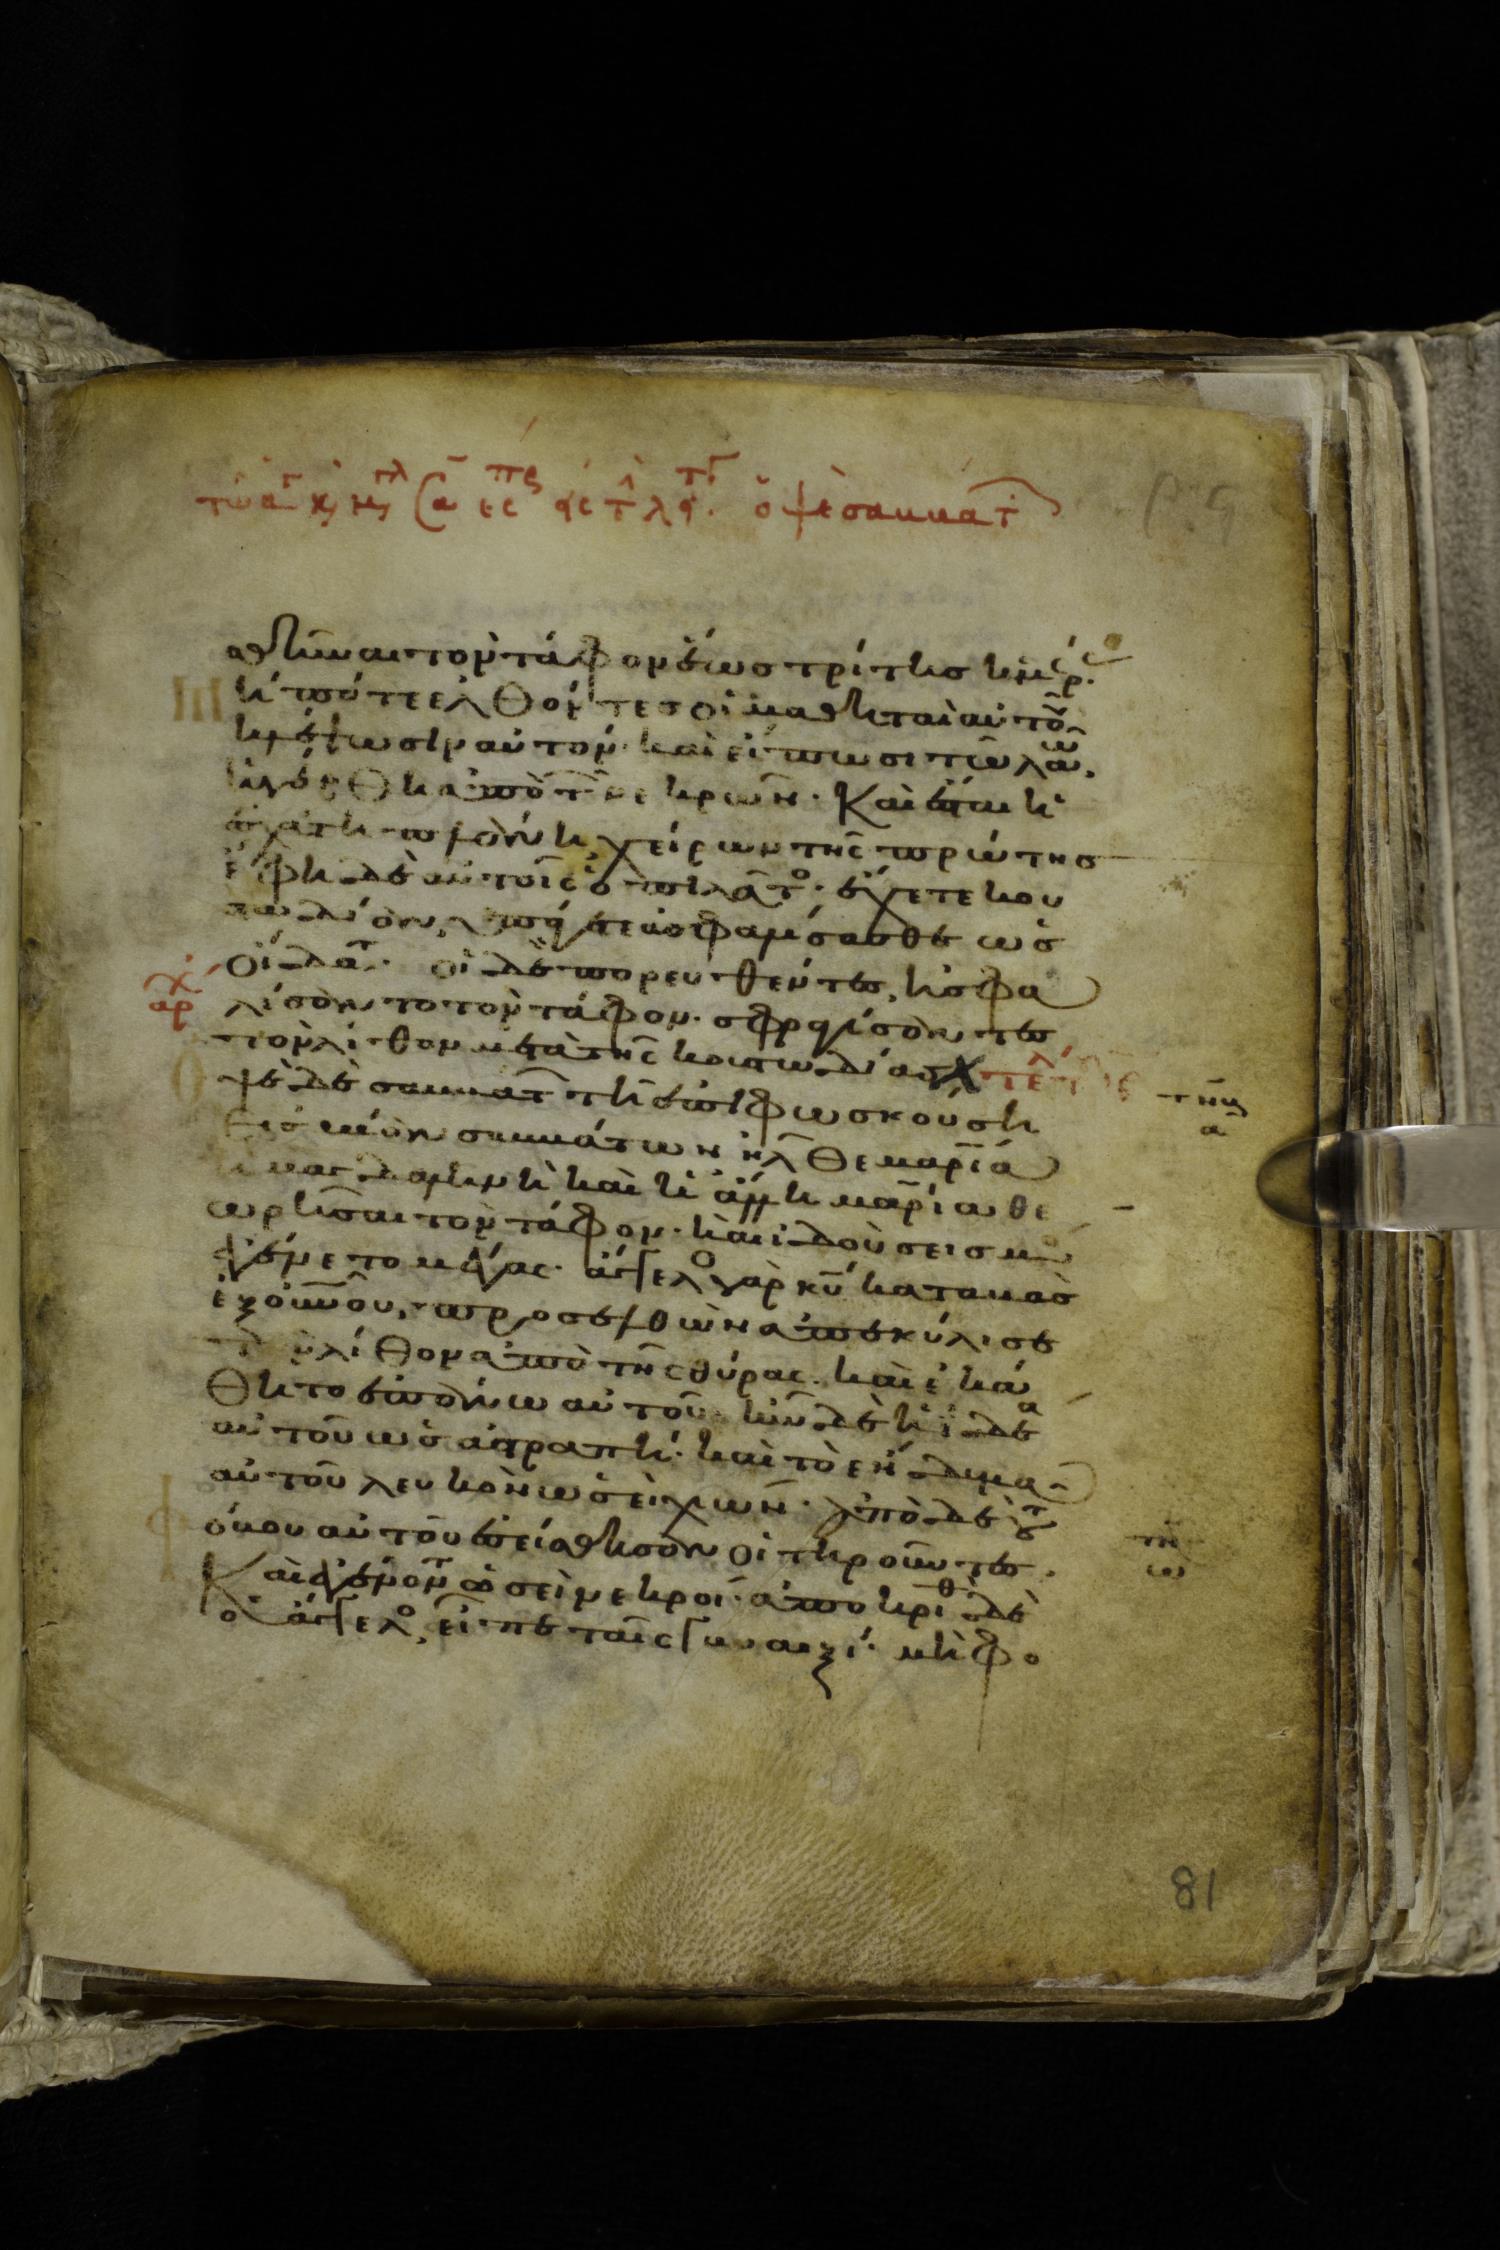 ὀψὲ σαββατ
ασθῆναι τὸν τάφον ἕως τρίτης ἡμέρ.
μήποτε ἐλθόντες οἱ μαθηταὶ αὐτοῦ
κλέψωσιν αὐτὸν· καὶ εἴπωσι τῷ λαῷ,
ἠγέρθη ἀπὸ τῶν νεκρῶν· Καὶ ἔσται ἡ
ἐσχάτη πλάνη χείρων τῆς πρώτης
ἔφη δὲ αὐτοῖς ὁ πιλάτο· ἔχετε κου
στωδίαν, ὑπάγετε ἀσφαλίσασθε ὡς
οἴδατ· οἱ δὲ πορευθέντες, ἠσφα
αρχ
λίσαντο τὸν τάφον· σφραγίσαντες
τὸν λίθον μετὰ τῆς κουστωδίας τέλ
ὀψὲ δὲ σαββάτ τῇ ἐπιφωσκούσῃ
εἰς μίαν σαββάτων ἦλθε μαρία
ἡ μαγδαληνὴ καὶ ἡ ἄλλη μαρία θε
ωρῆσαι τὸν τάφον· καὶ ἰδοὺ σεισμὸ
ἐγένετο μέγας· ἄγγελο γὰρ κυ καταβὰς
ἐξ οὐνου, προσελθὼν ἀπεκύλισε
τὸν λίθον ἀπὸ τῆς θύρας· καὶ ἐκά
θητο ἐπάνω αὐτοῦ· ἦν δὲ ἡ ἰδέα
αὐτοῦ ὡς ἀστραπὴ· καὶ τὸ ἔνδυμα
αὐτοῦ λευκὸν ὡσεὶ χιών· ἀπὸ δὲ τοῦ
φόβου αὐτοῦ ἐσείσθησαν οἱ τηροῦντες·
Καὶ ἐγένοντ ὡσεὶ νεκροί· ἀποκριθ δὲ
ὁ ἄγγελο, εἶπε ταῖς γυναιξί· μὴ φο
81